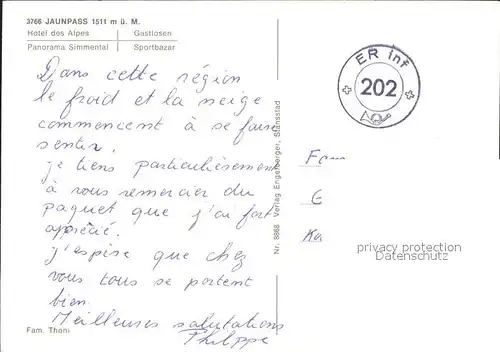 3766 JAUNPASS 1511 m ü. M.
Hotel des Alpes | Gastlosen
Panorama Simmental | Sportbazar
Dans cette région
le froid et la neige
commencent à se faire
sentir.
je tiens particulièrement
à vous remercier du
paquet que j'ai fort
apprécié.
j'espère que chez
vous tous se portent
bien.
Meilleures salutations
Philippe
Fam. Thoni
Nr. 8868 Verlag Engelberger, Stansstad
ER Inf
202
Fam
E
Ka
privacy protection
Datenschutz